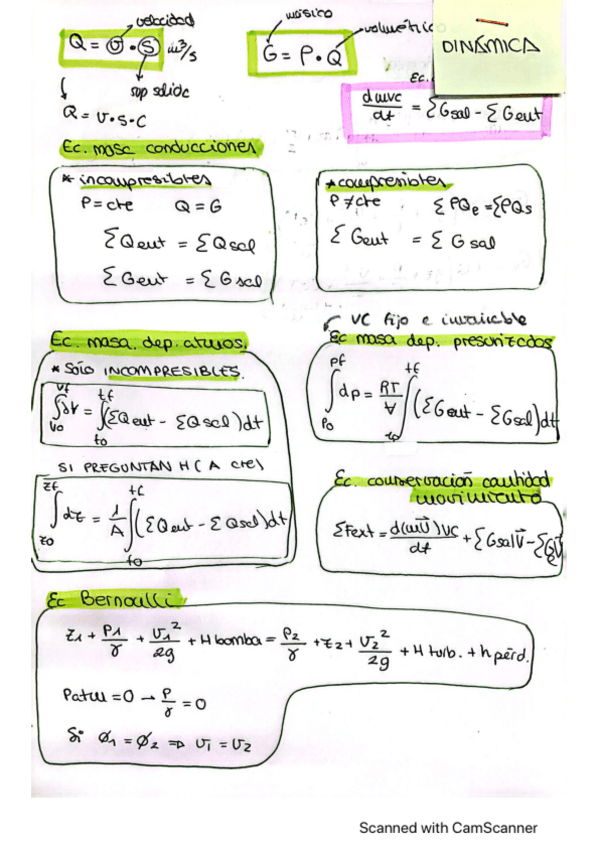 velocidad
Q = v · S m³/s
sup salida
Q = v·S·C
másico
volumétrico
G = ρ · Q
DINÁMICA
Ec.
dmvc/dt = ΣGsal - ΣGent
Ec. masa conducciones
* incompresibles
ρ = cte Q = G
ΣQent = ΣQsal
ΣGent = ΣGsal
* compresibles
ρ ≠ cte ΣρQe = ΣρQs
ΣGent = ΣGsal
Ec. masa. dep. atmos.
* SÓlO INCOMPRESIBLES.
∫V0^Vf dV = ∫t0^tf (ΣQent - ΣQsal)dt
SI PREGUNTAN H (A cte)
∫z0^zf dz = 1/A ∫t0^tf (ΣQent - ΣQsal)dt
VC fijo e invariable
Ec masa dep. presurizados
∫P0^Pf dp = RT/V ∫t0^tf (ΣGent - ΣGsal)dt
Ec. conservación cantidad
movimiento
ΣFext = d(mv⃗)vc/dt + ΣGsal v⃗ - ΣGe v⃗
Ec Bernoulli
z1 + P1/γ + v1²/2g + Hbomba = P2/γ + z2 + v2²/2g + H turb. + h pérd.
Patm = 0 → P/γ = 0
Si Ø1 = Ø2 ⇒ v1 = v2
Scanned with CamScanner